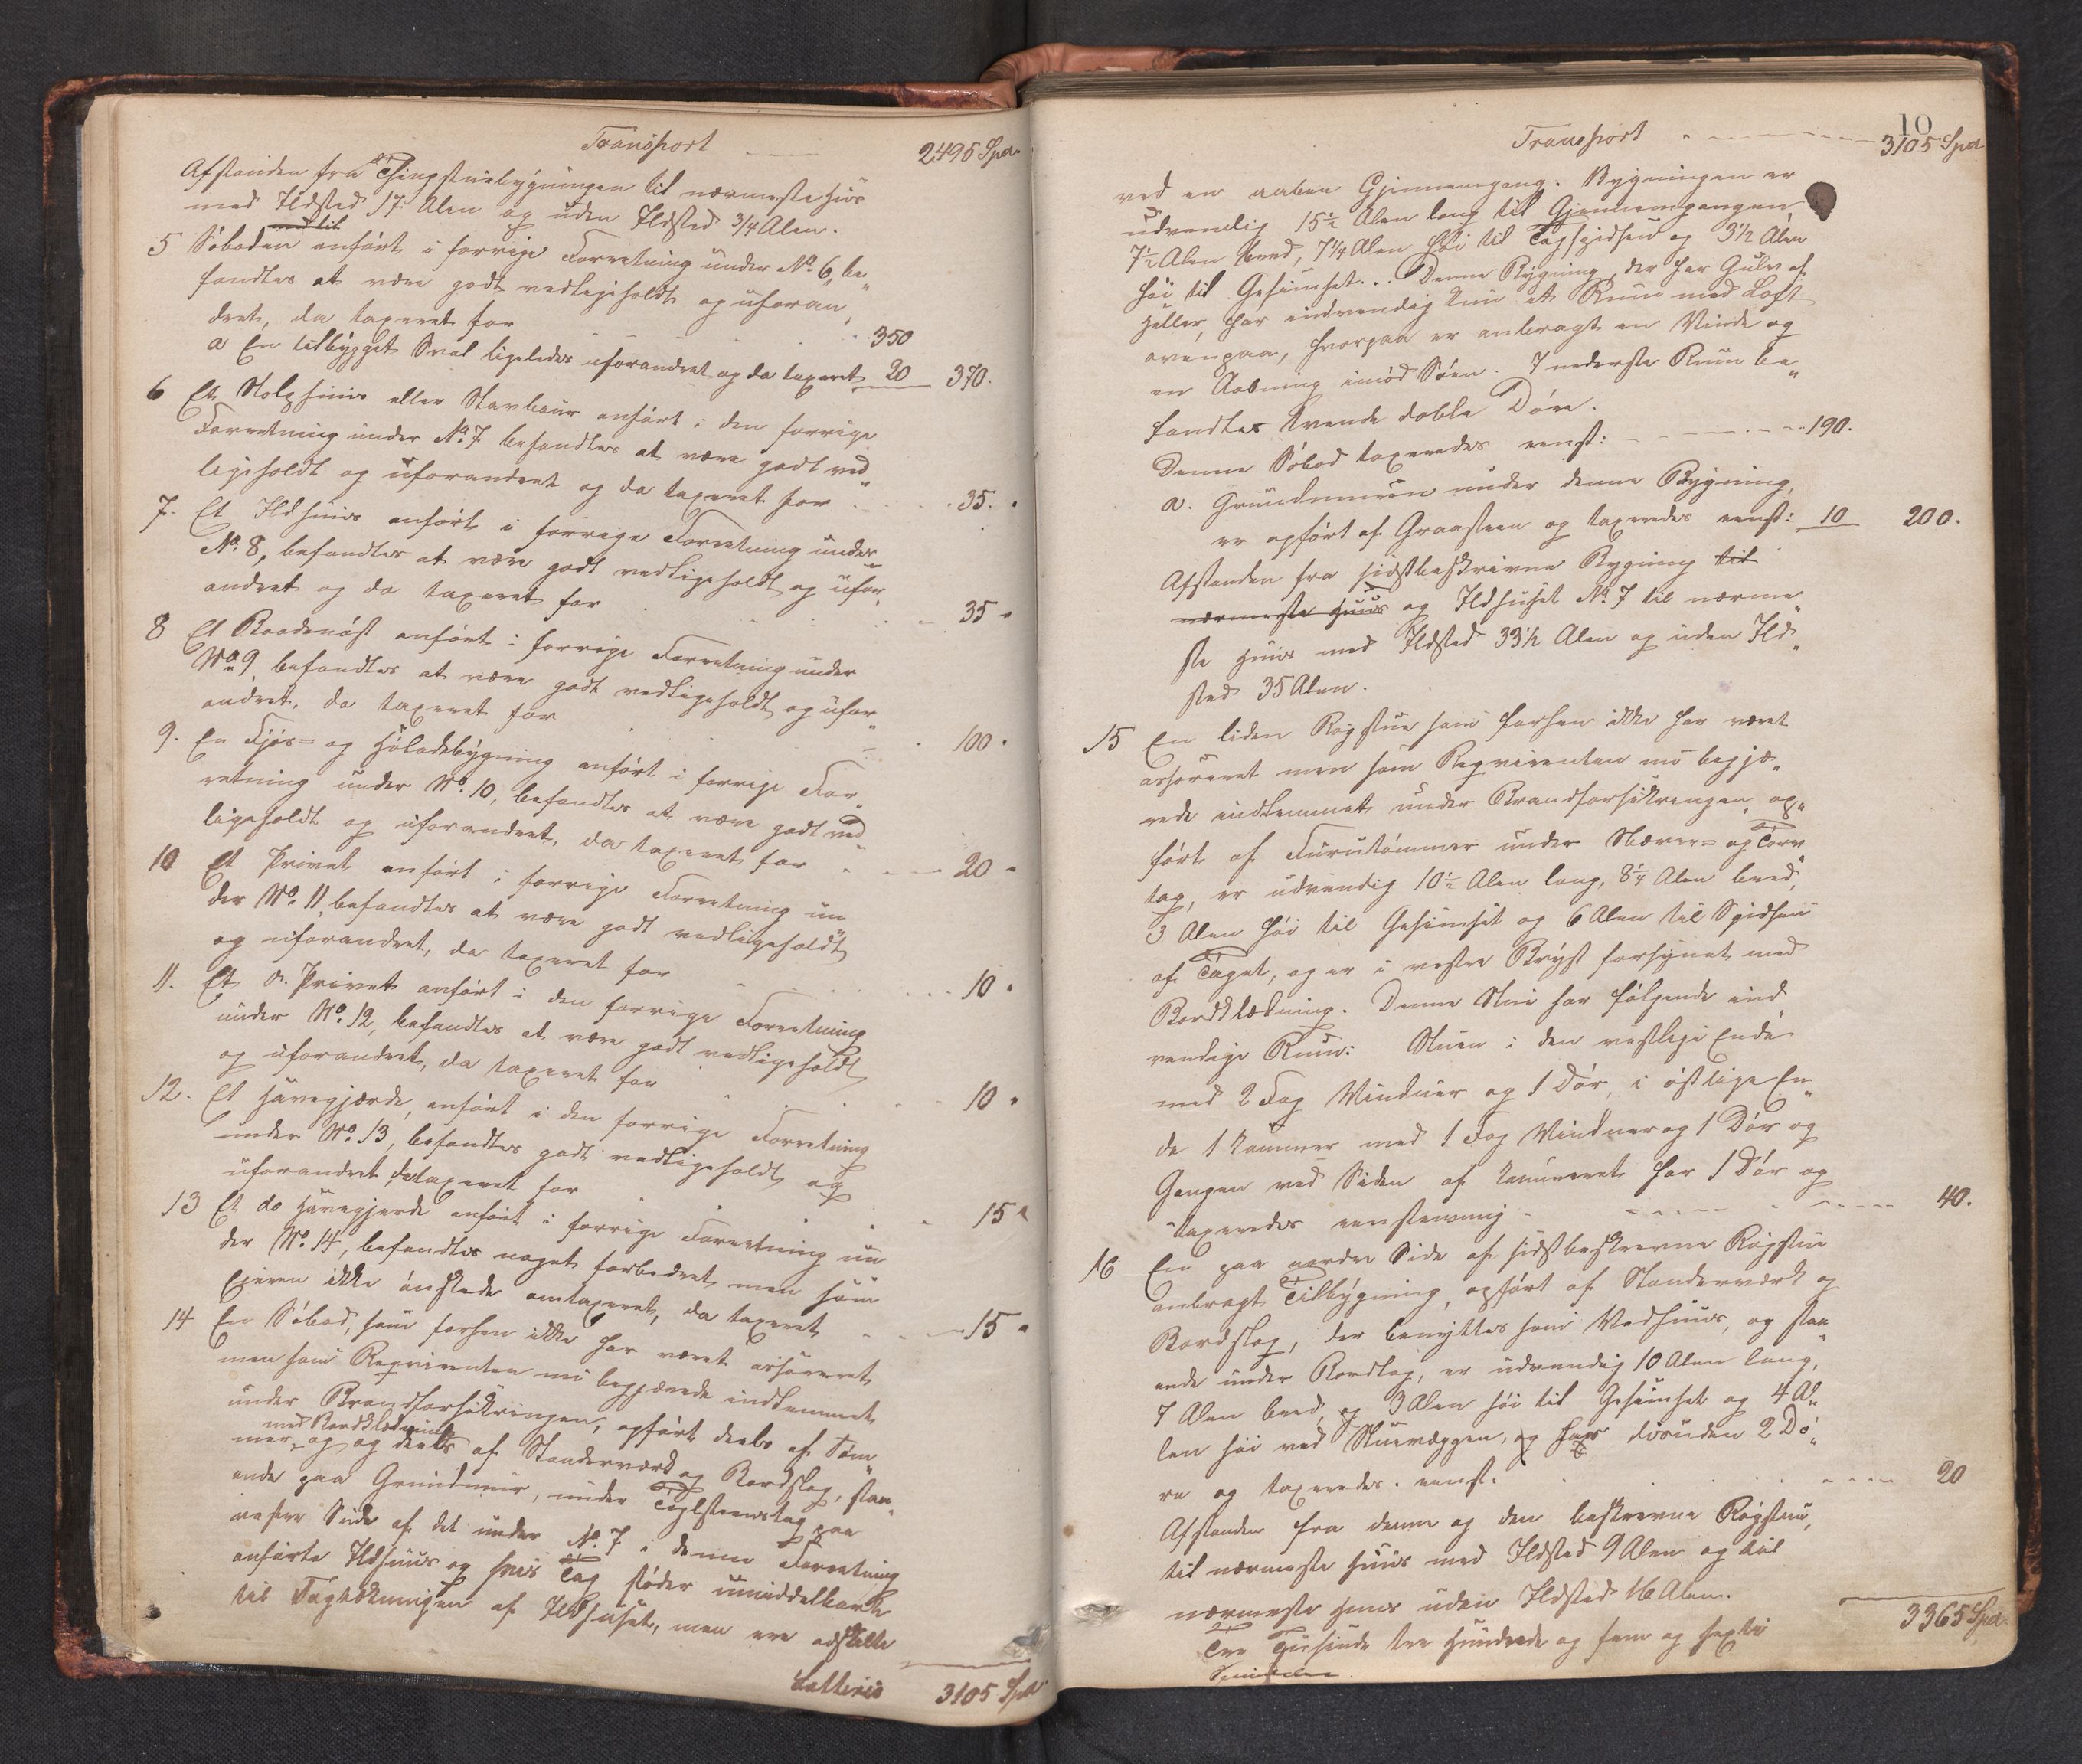 Transport 2495 Spd.
Afstanden fra Thingstuebygningen til nærmeste Huus
med Ildsted 17 Alen og uden Ildsted 3/4 Alen.
med til
5 Söboden anfört i forrige Forretning under No. 6, be„
fandtes at være godt vedligeholdt og uforan„
dret, da taxeret for 350
a En tilbygget Sval ligeledes uforandret og da taxeret 20 370.
6 Et Stolphuus eller Stavbuur anfört i den forrige
Forretning under No. 7 befandtes at være godt ved„
ligeholdt og uforandret og da taxeret for 35.
7. Et Ildhuus anfört i forrige Forretning under
No. 8, befandtes at være godt vedligeholdt og ufor„
andret og da taxeret for 35
8 Et Baadenöst anfört i forrige Forretning under
No. 9, befandtes at være godt vedligeholdt og ufor„
andret, da taxeret for 100
9. En Fjös= og Höladebygning anfört i forrige For„
retning under No. 10, befandtes at være godt ved„
ligeholdt og uforandret, da taxeret for 20
10 Et Privet anfört i forrige Forretning un„
der No. 11, befandtes at være godt vedligeholdt
og uforandret, da taxeret for 10
11. Et do. Privet anfört i den forrige Forretning
under No. 12, befandtes at være godt vedligeholdt
og uforandret, da taxeret for 10
12. Et Havegjærde, anfört i den forrige Forretning
under No. 13, befandtes godt vedligeholdt og
uforandret, da taxeret for 15
13 Et do Havegjerde anfört i forrige Forretning un
der No. 14, befandtes noget forbedret men som
Ejeren ikke önskede omtaxeret, da taxeret 15
14 En Söbod, som forhen ikke har været assureret
men som Reqvirenten nu begjærede indlemmet
under Brandforsikringen, opfört deels af Töm„
med Bordklædning
mer og og deels af Standerværk og Bordslag, staa„
ende paa Grundmuur, under Taglsteenstag paa
vestre Side af det under No. 7 i denne Forretning
anförte Ildhuus og hvis Tag stöder umiddelbart
til Tagtækningen af Ildhuset, men ere adskilte
Latteris 3105 Spd.
10
Transport 3105 Spd
ved en aaben Gjennemgang. Bygningen er
udvendig 15 1/2 Alen lang til Gjennemgangen
7 1/2 Alen bred, 7 1/4 Alen höi til Tagspidsen og 3 1/2 Alen
höi til Gesimset. Denne Bygning, der har Gulv af
Heller, har indvendig kun et Rum med Loft
ovenpaa, hvorpaa er anbragt en Vinde og
en Aabning imod Söen. I nederste Rum be„
fandtes tvende doble Döre.
Denne Söbod taxeredes eenst: 190.
a. Grundmuren under denne Bygning,
er opfört af Graasteen og taxeredes eenst: 10 200.
Afstanden fra sidstbeskrivne Bygning til
nærmeste Huus og Ildhuset No. 7 til nærme„
ste Huus med Ildsted 33 1/2 Alen og uden Ild„
sted 35 Alen.
15 En liden Rögstue som forhen ikke har været
assureret men som Reqvirenten nu begjæ„
rede indlemmet under Brandforsikringen, op„
fört af Furutömmer under Næver= og Torv
tag, er udvendig 10 1/2 Alen lang, 8 1/4 Alen bred,
3 Alen höi til Gesimset og 6 Alen til Spidsen
af Taget, og er i vestre Bryst forsynet med
Bordklædning. Denne Stue har fölgende ind„
vendige Rum: Stuen i den vestlige Ende
med 2 Fag Vinduer og 1 Dör, i östlige En„
de 1 Kammer med 1 Fag Vinduer og 1 Dör og
Gangen ved Siden af Kammeret har 1 Dör og
taxeredes eenstemmig 40.
16 En paa nordre Side af sidstbeskrevne Rögstue
anbragt Tilbygning, opfört af Standerværk og
Bordslag, der benyttes som Vedhuus, og staa„
ende under Bordtag, er udvendig 10 Alen lang,
7 Alen bred, og 3 Alen höi til Gesimset og 4 Al„
len höi ved Stuevæggen, og har desuden 2 Dö„
re og taxeredes eenst: 20
Afstanden fra denne og den beskrevne Rögstue,
til nærmeste Huus med Ildsted 9 Alen og til
nærmeste Huus uden Ildsted 16 Alen.
3365 Spd.
Tre Tusinde tre Hundrede og fem og sexti